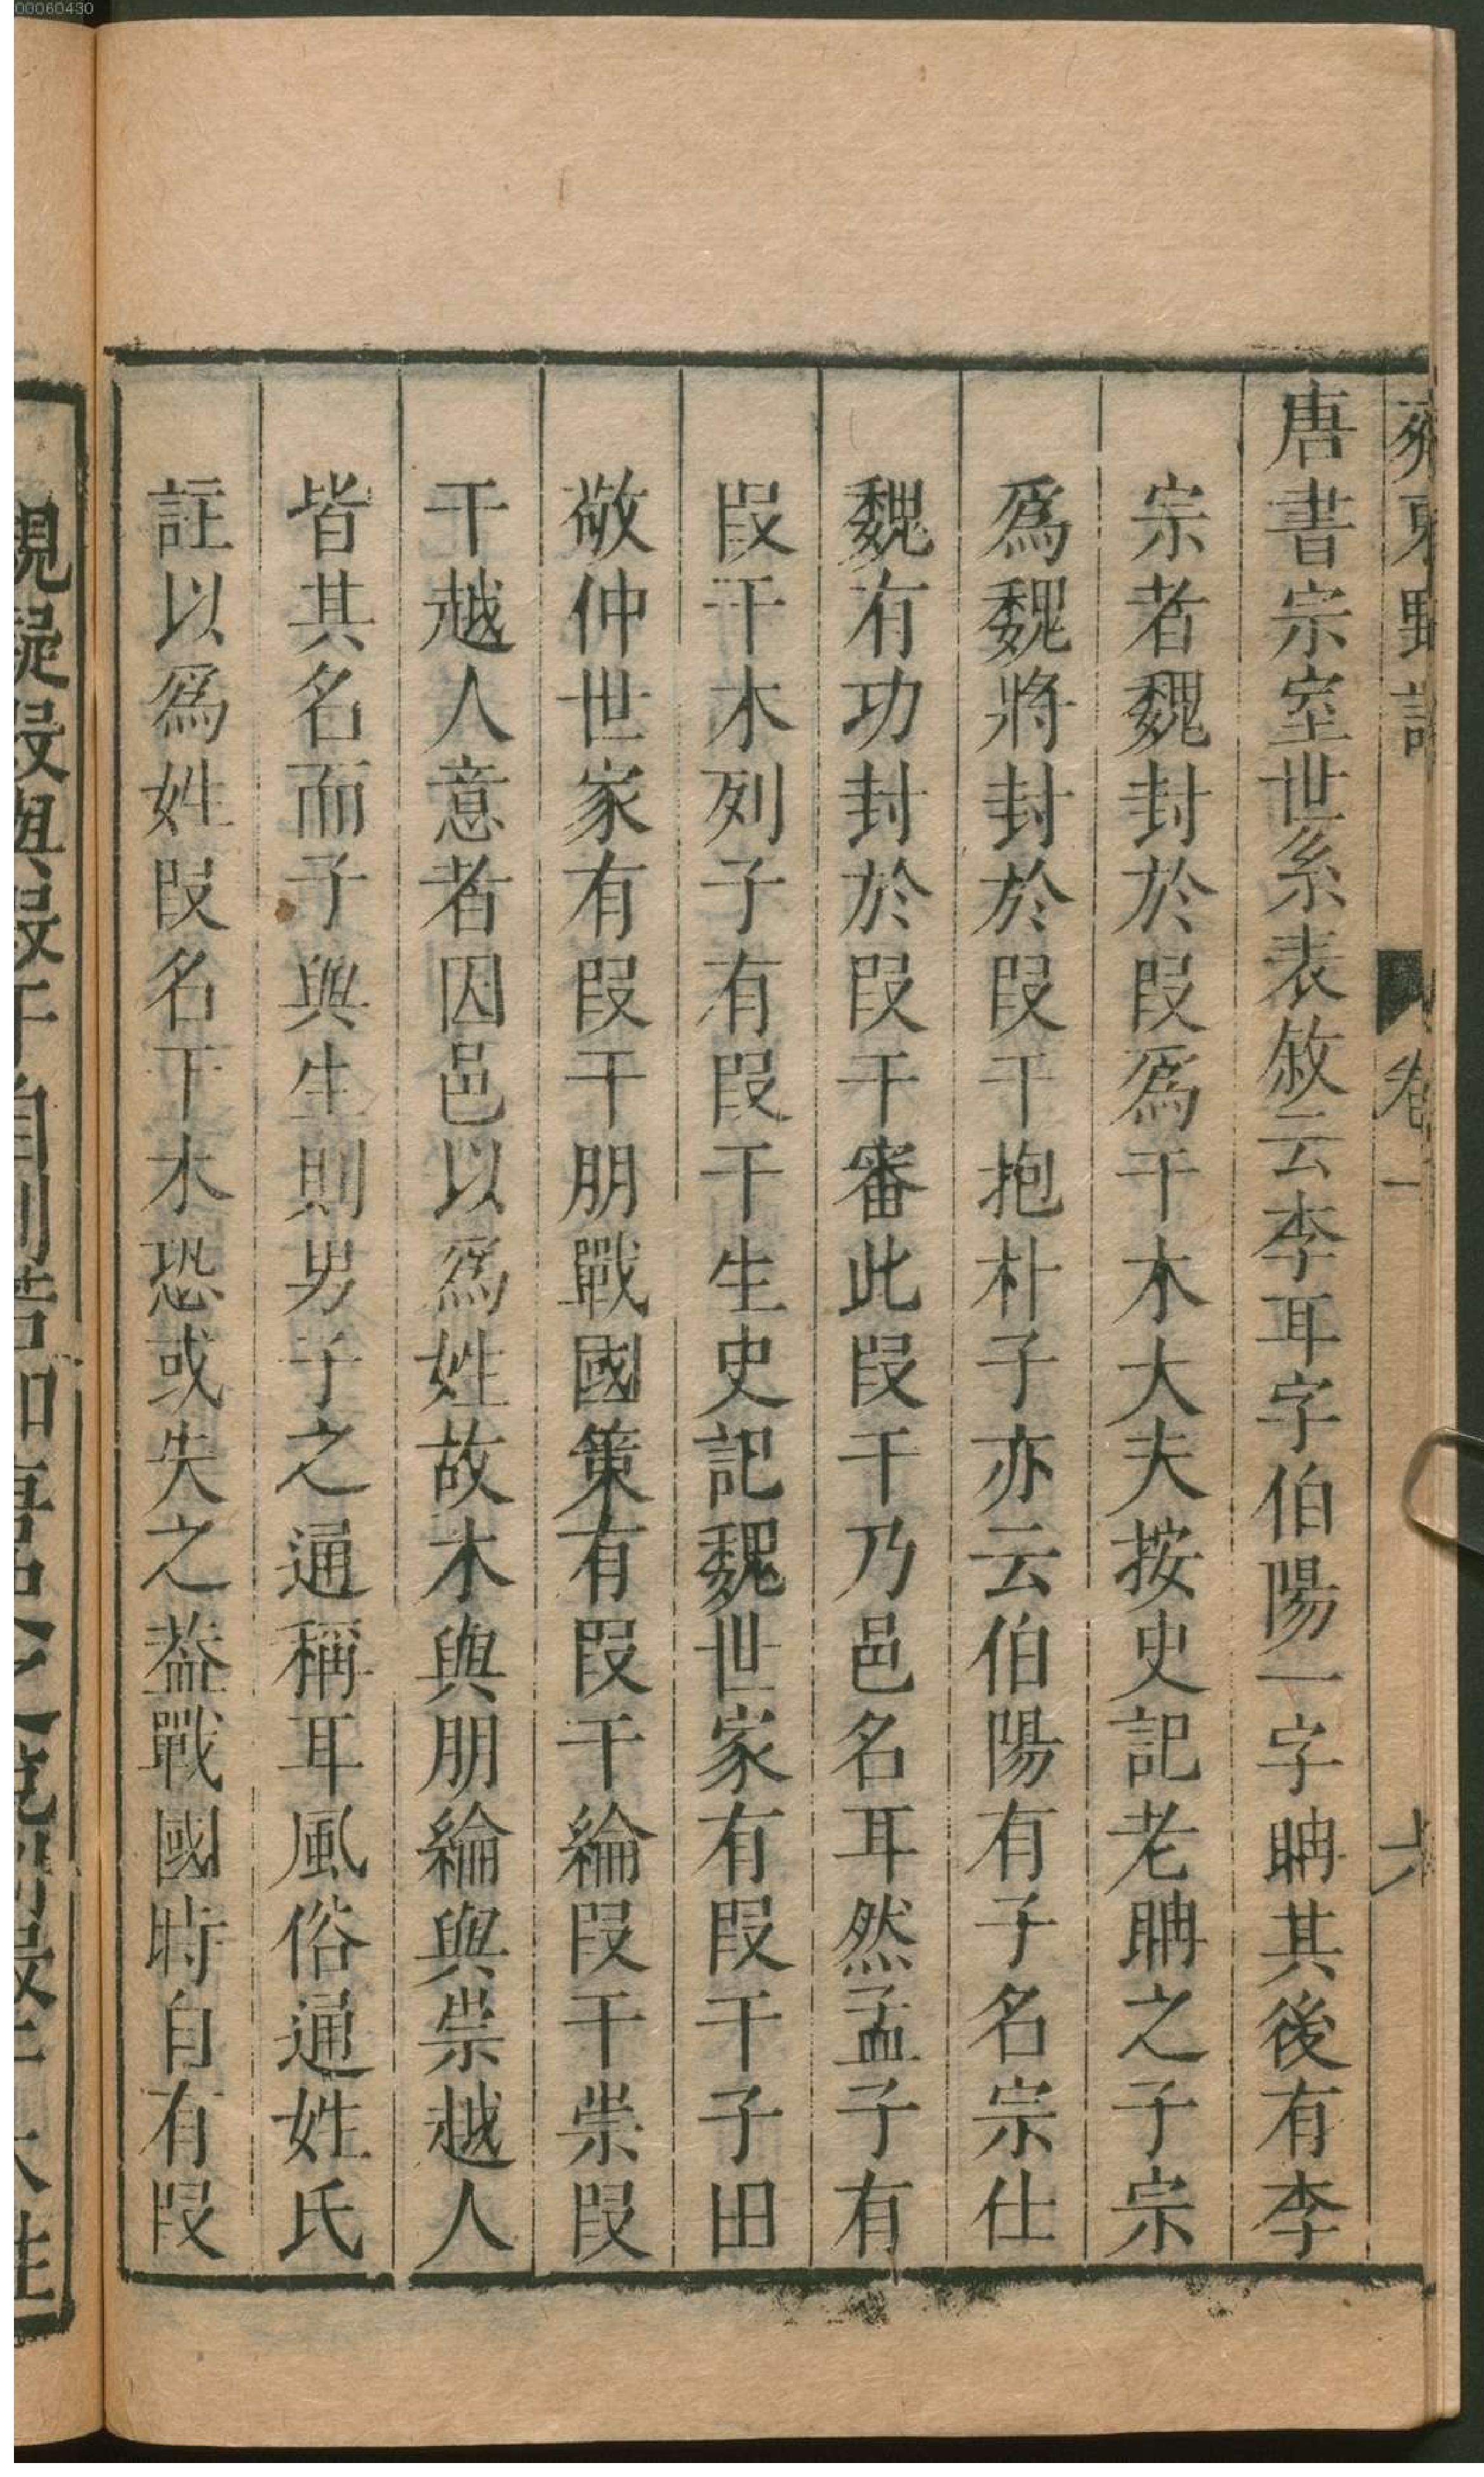 00060430
齊東野語 卷一 六
唐書宗室世系表敘云李耳字伯陽一字聃其後有李
宗者魏封於叚爲干木大夫按史記老聃之子宗
爲魏將封於叚干抱朴子亦云伯陽有子名宗仕
魏有功封於叚干審此叚干乃邑名耳然孟子有
叚干木列子有叚干生史記魏世家有叚干子田
敬仲世家有叚干朋戰國策有叚干綸叚干崇叚
干越人意者因邑以爲姓故木與朋綸與崇越人
皆其名而子與生則男子之通稱耳風俗通姓氏
註以爲姓叚名干木恐或失之葢戰國時自有叚